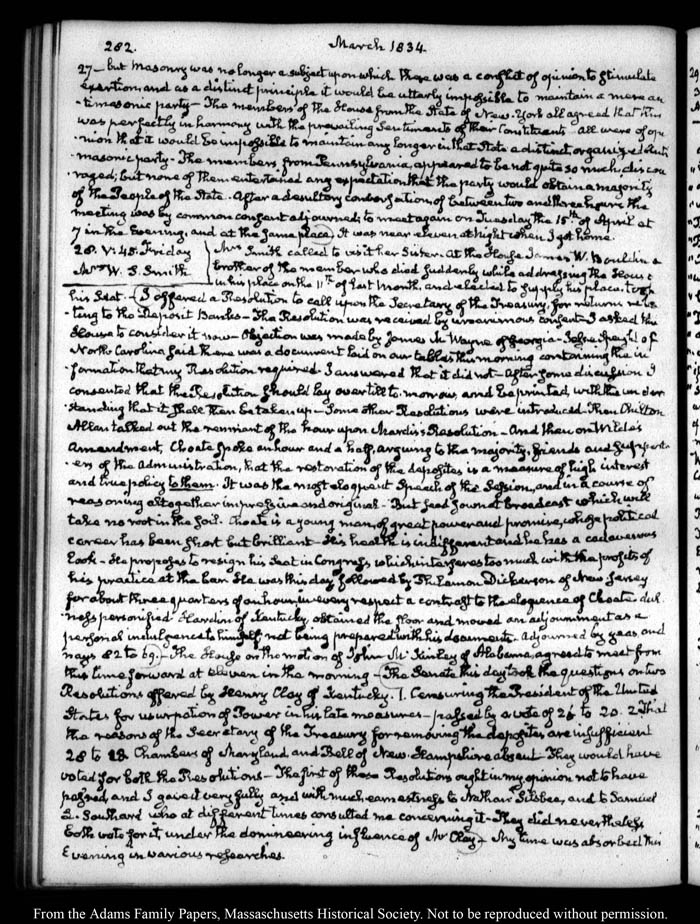 282.
March 1834.
27— but Masonry was no longer a subject upon which there was a conflict of opinion to stimulate
exertion, and as a distinct principle it would be utterly impossible to maintain a mere an-
-timasonic party— The members of the House from the State of New-York all agreed that this
was perfectly in harmony with the prevailing Sentiments of their Constituents— all were of opi-
-nion that it would be impossible to maintain any longer in that State a distinct organized Anti-
-masonic party— The members from Pennsylvania, appeared to be not quite so much discou-
-raged; but none of them entertained any expectation that the party would obtain a majority
of the People of the State. After a desultory conversation, of between two and three hours, the
meeting was by common consent adjourned; to meet again on Tuesday the 15th of April at
7 in the Evening, and at the same place. It was near eleven at Night when I got home.
28. V:45. Friday
Mrs W. S. Smith.
Mrs Smith called to visit her Sister. At the House James W. Bouldin a
brother of the member who died suddenly while addressing the House
in his place on the 11th of last Month, and elected to supply his place, took
his Seat.— I offered a Resolution to call upon the Secretary of the Treasury, for returns rela-
-ting to the Deposit Banks— The Resolution was received by unanimous consent— I asked the
House to consider it now— Objection was made by James M. Wayne of Georgia— Jesse Speight of
North Carolina said there was a document laid on our tables this morning containing the in-
-formation that my Resolution required. I answered that it did not— After some discussion I
consented that the Resolution should lay over till to-morrow, and be printed, with the under-
standing that it shall then be taken up— Some other Resolutions were introduced. Then Chilton
Allan talked out the remnant of the hour upon Mardis's Resolution— And then on Wilde's
Amendment, Choate spoke an hour and a half, arguing to the majority, friends and support-
-ers of the Administration, that the restoration of the deposites is a measure of high interest
and true policy to them. It was the most eloquent Speech of the Session, and in a course of
reasoning altogether impressive and original— But seed sown at broadcast which will
take no root in the soil. Choate is a young man, of great power and promise, whose political
career has been short but brilliant— His health is indifferent and he has a cadaverous
look— He proposes to resign his Seat in Congress which interferes too much with the profits of
his practice at the bar. He was this day followed by Philemon Dickerson of New Jersey
for about three quarters of an hour, in every respect a contrast to the eloquence of Choate: dul-
-ness personified. Hardin of Kentucky, obtained the floor and moved an adjournment as a
personal indulgence to himself, not being prepared with his documents. Adjourned by yeas and
nays 82 to 69.— The House on the motion of John McKinley of Alabama agreed to meet from
this time forward at eleven in the morning— The Senate this day took the questions on two
Resolutions offered by Henry Clay of Kentucky. 1. Censuring the President of the United
States for usurpation of Power in his late measures— passed by a vote of 26 to 20. 2. That
the reasons of the Secretary of the Treasury for removing the deposites are insufficient
28 to 18. Chambers of Maryland and Bell of New-Hampshire absent— They would have
voted for both the Resolutions— The first of these Resolutions ought in my opinion not to have
passed, and I gave it very fully and with much earnestness to Nathan Silsbee, and to Samuel
L. Southard who at different times consulted me concerning it— They did nevertheless
both vote for it, under the domineering influence of Mr Clay— My time was absorbed this
Evening in various researches.
From the Adams Family Papers, Massachusetts Historical Society. Not to be reproduced without permission.